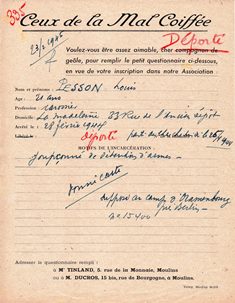 335
Ceux de la Mal Coiffée
23/5 1945
Déporté
Voulez-vous être assez aimable, cher compagnon de
geôle, pour remplir le petit questionnaire ci-dessous,
en vue de votre inscription dans notre Association :
Nom et prénoms : PESSON Louis
Age : ans
Profession :
Domicile : La Madeleine 33 Rue de l'ancien dépôt
Arrêté le : 28 février 1944
Libéré le :
Déporté
MOTIFS DE L'INCARCÉRATION :
Soupçonné de détention d'armes
donné carte
au camp
près Berlin
Adresser le questionnaire rempli :
à Mᵉ TINLAND, 5, rue de la Monnaie, Moulins
ou à M. DUCROS, 15 bis, rue de Bourgogne, à Moulins.